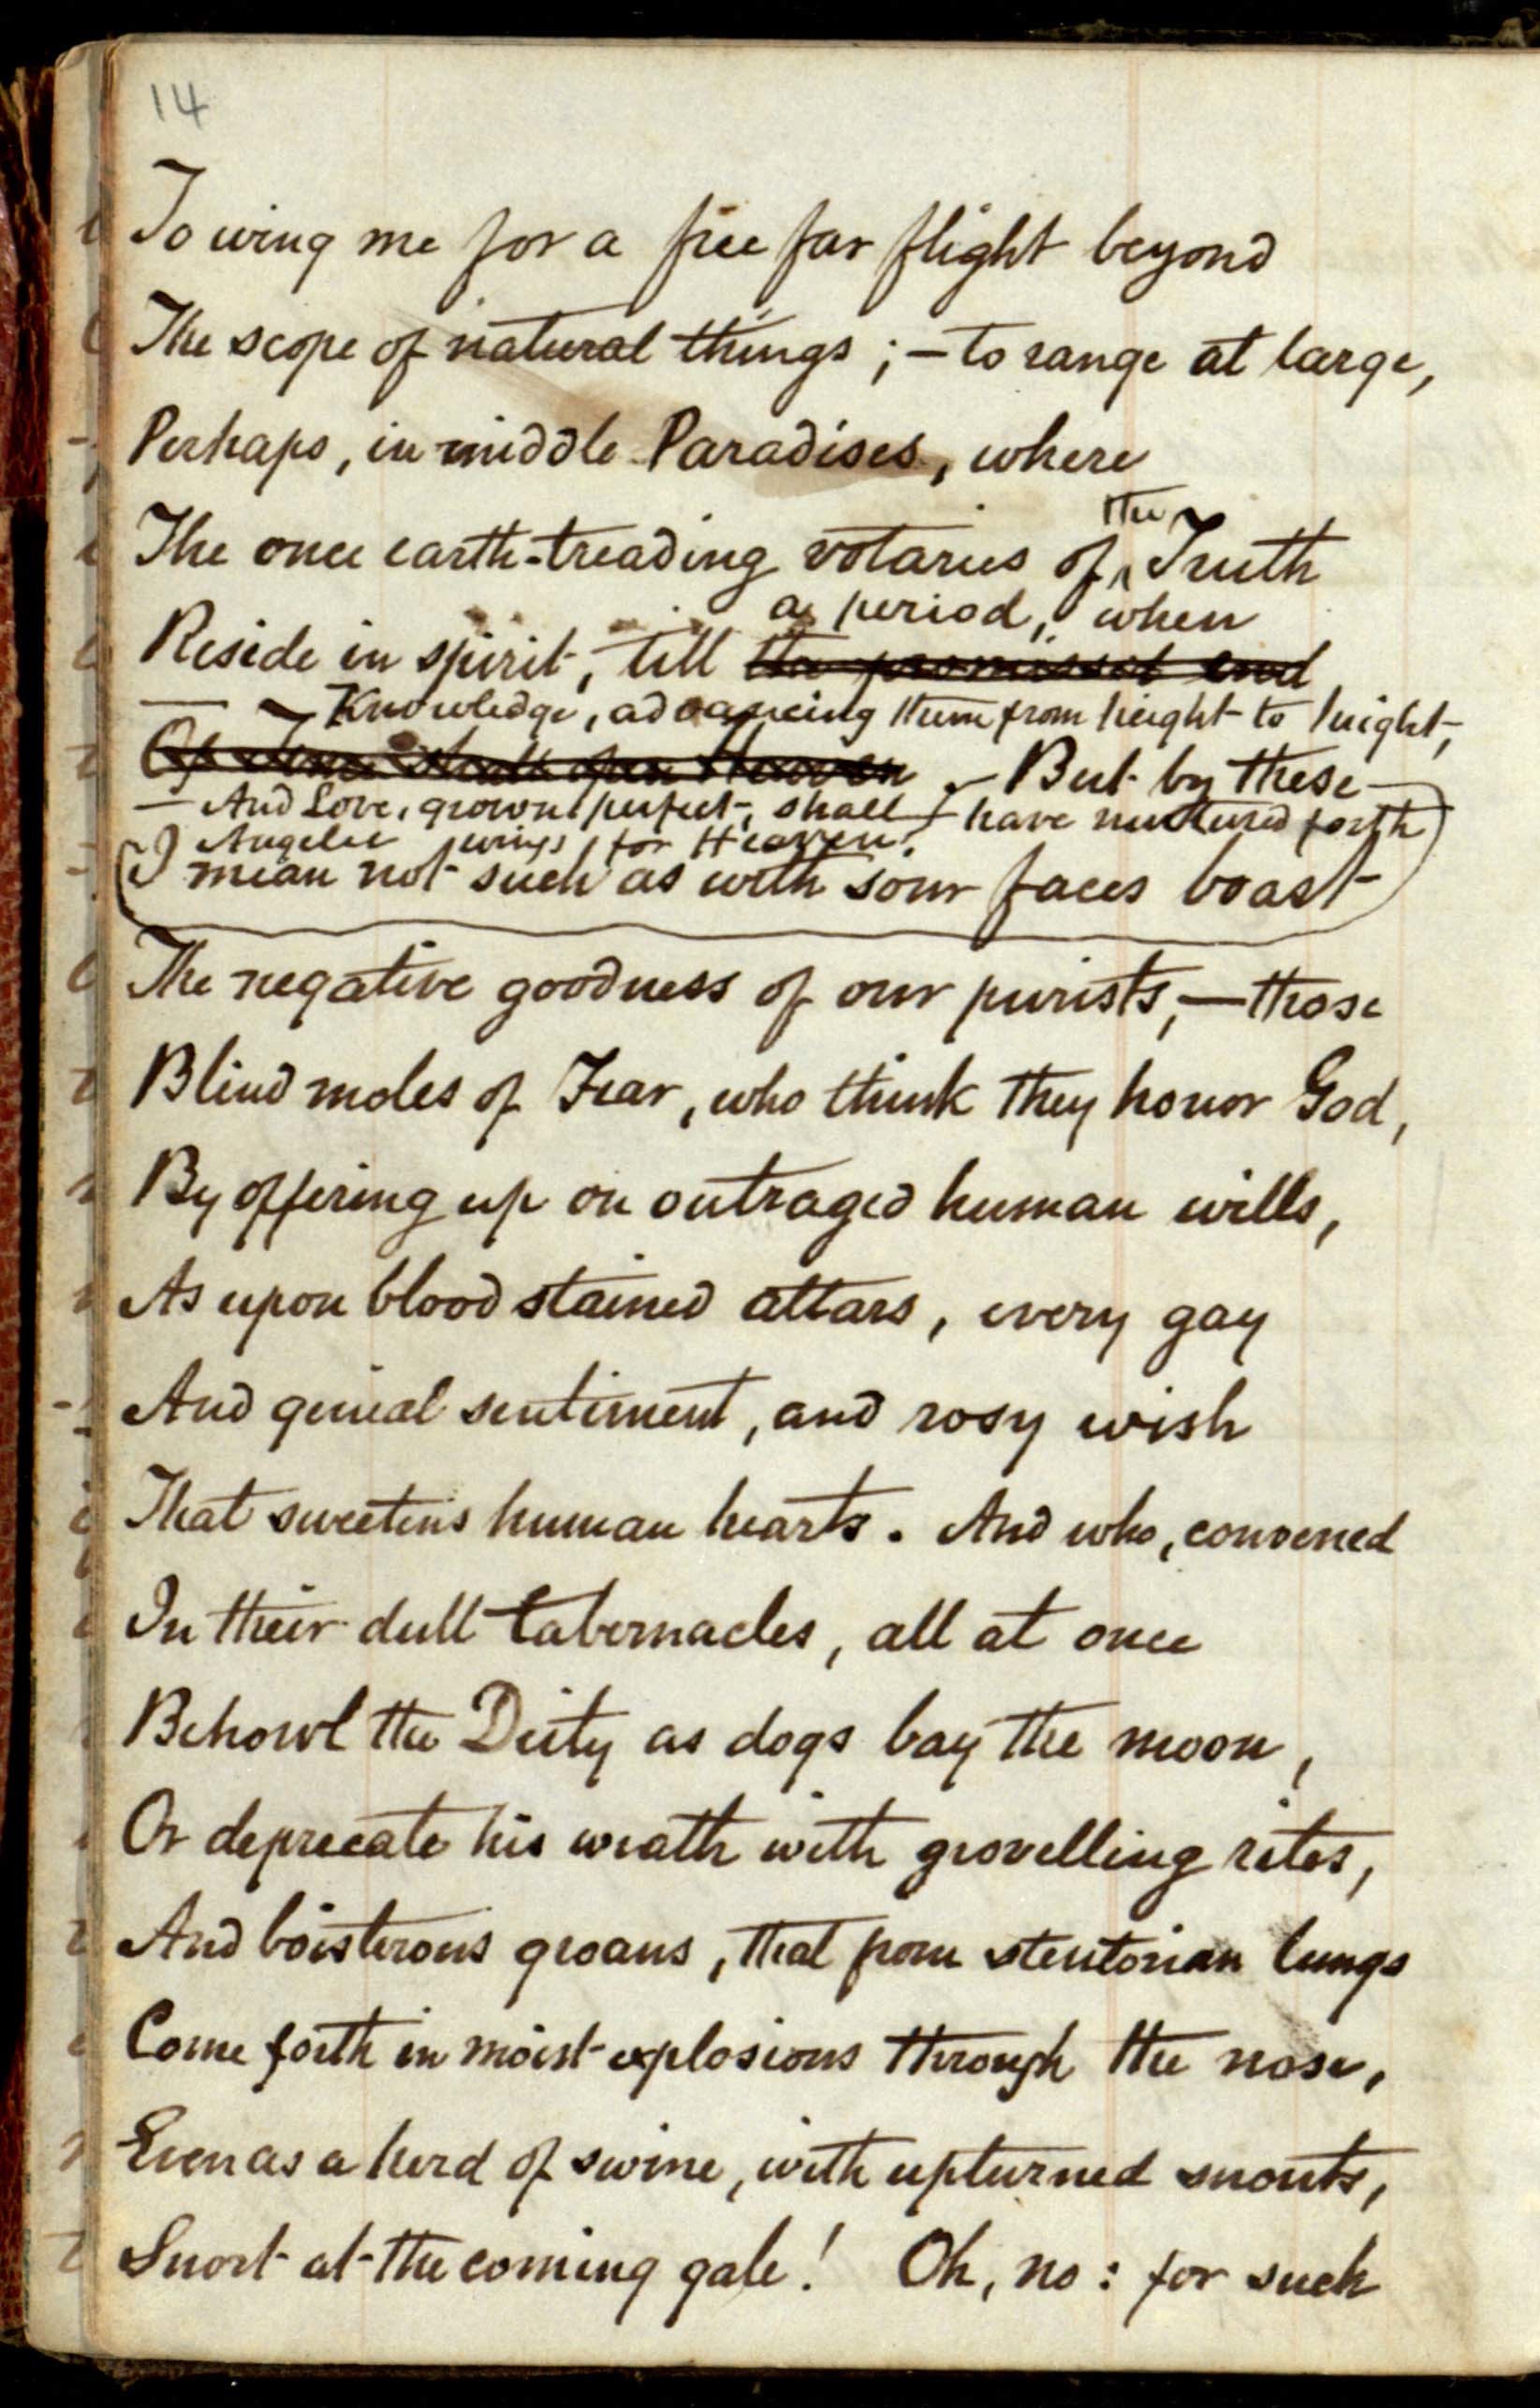 14
To wing me for a free far flight beyond
The scope of natural things ; — to range at large,
Perhaps, in middle Paradises, where
the
The once earth-treading votaries of ^ Truth
a period, when
Reside in spirit, till the promised end
— Knowledge, advancing them from height to height,
Of time shall open Heaven. — But by these —
— And Love, grown perfect, shall have nurtured forth
Angelic wings for Heaven.
I mean not such as with sour faces boast
The negative goodness of our purists, — those
Blind moles of Fear, who think they honor God,
By offering up on outraged human wills,
As upon blood stained altars, every gay
And genial sentiment, and rosy wish
That sweetens human hearts. And who, convened
In their dull tabernacles, all at once
Behowl the Deity as dogs bay the moon,
Or deprecate his wrath with grovelling rites,
And boisterous groans, that from stentorian lungs
Come forth in moist explosions through the nose,
Even as a herd of swine, with upturned snouts,
Snort at the coming gale! Oh, no: for such